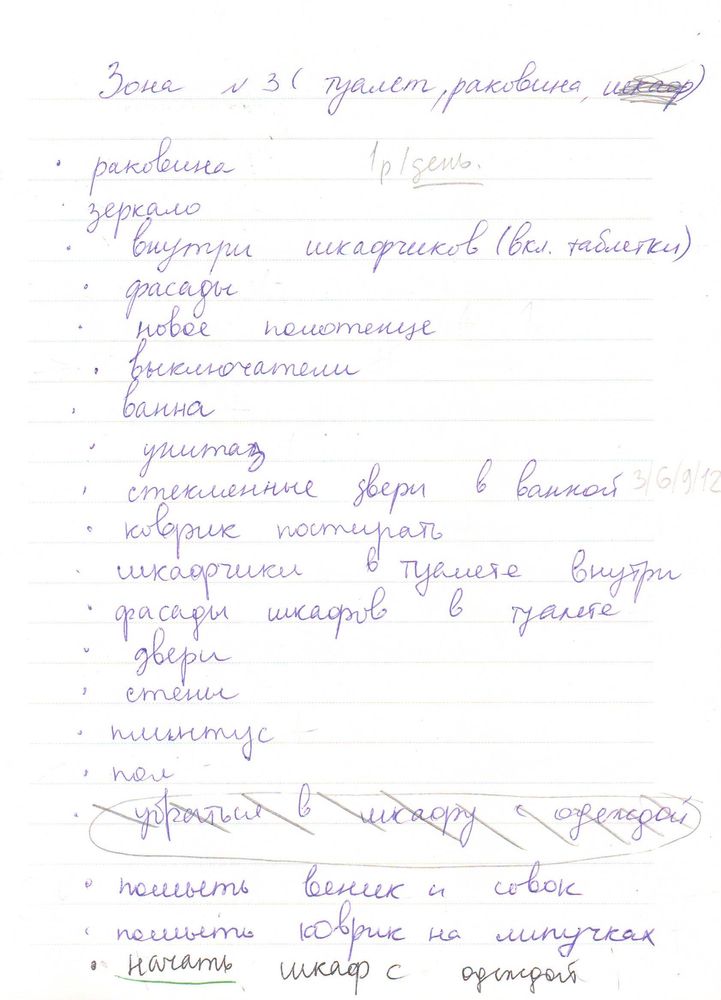 Зона № 3 ( туалет, раковина, шкаф)
• раковина 1р/день.
• зеркало
• внутри шкафчиков (вкл. таблетки)
• фасады
• новое полотенце
• выключатели
• ванна
• унитаз
• стекленные двери в ванной 3/6/9/12
• коврик постирать
• шкафчики в туалете внутри
• фасады шкафов в туалете
• двери
• стены
• плинтус
• пол
• убраться в шкафу с одеждой
• помыть веник и совок
• помыть коврик на липучках
• начать шкаф с одеждой